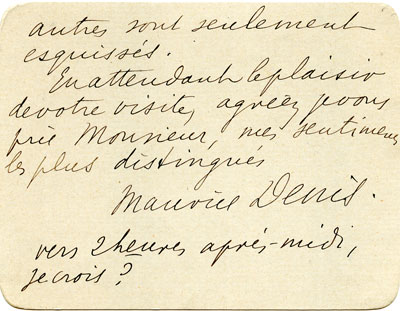 autres sont seulement
esquissés.
En attendant le plaisir
de votre visite, agréez, je vous
prie Monsieur, mes sentiments
les plus distingués
Maurice Denis.
vers 2 heures après-midi,
je crois ?